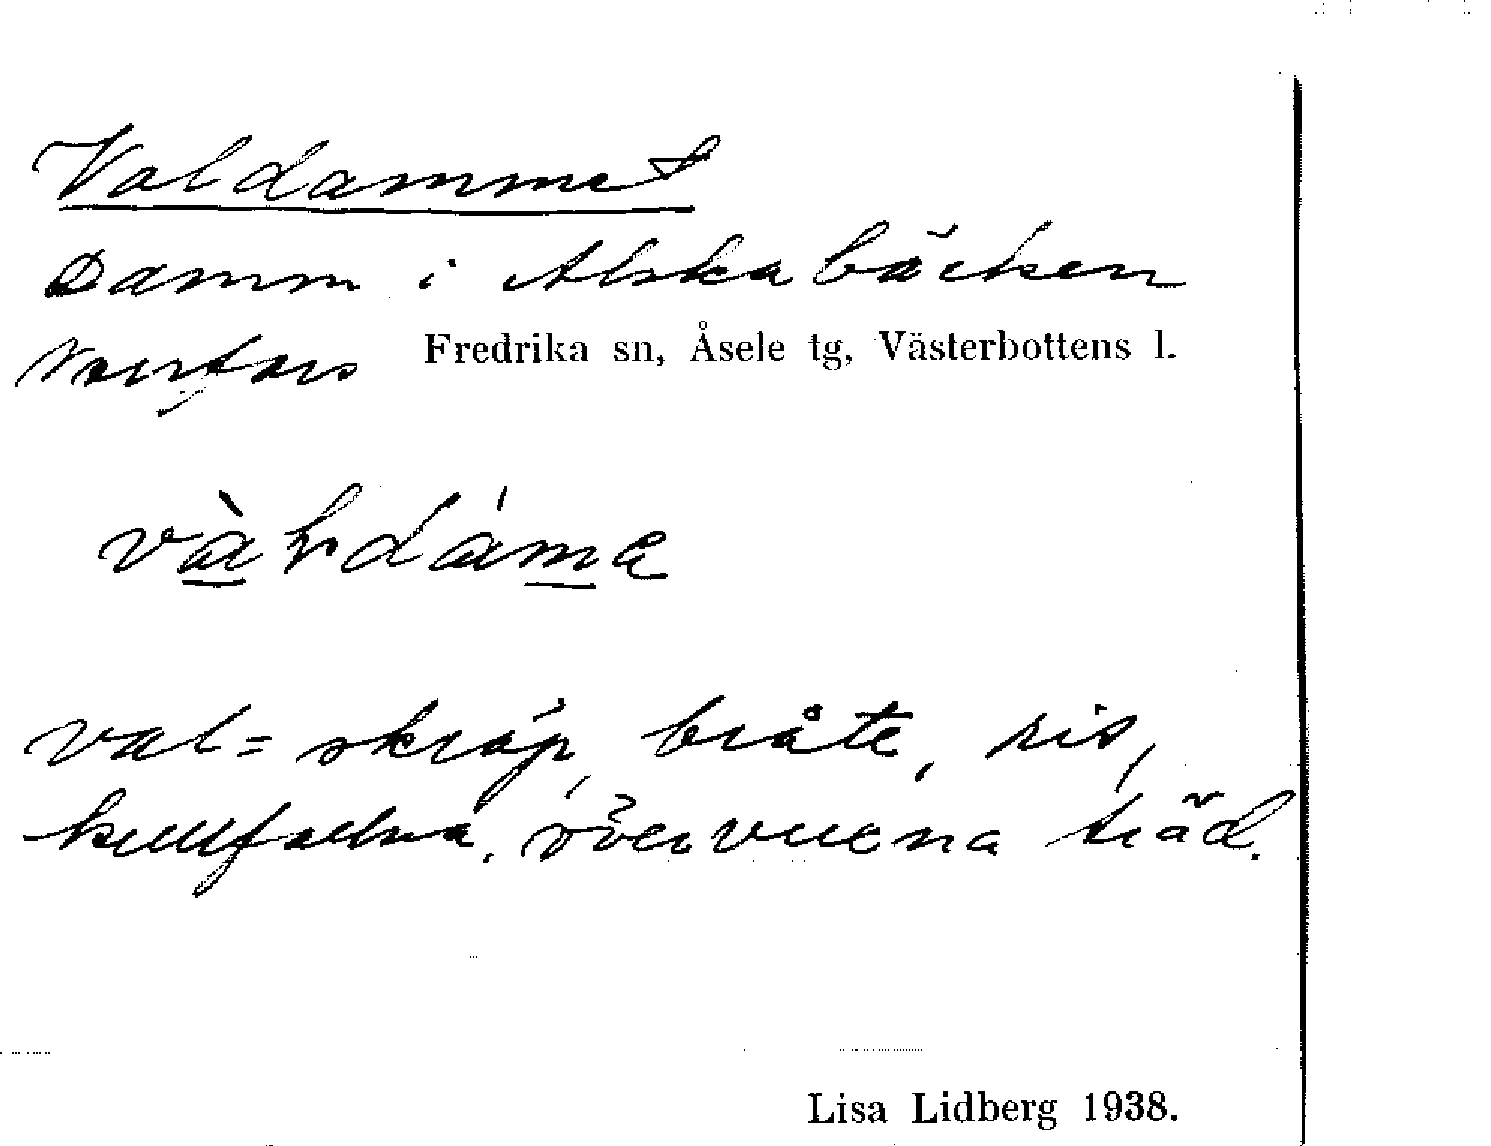 Valdammet
Damm i Alskabäcken
Fredrika sn, Åsele tg, Västerbottens l.
val = skräp, bråte, ris,
kullfallna, övervuxna träd.
Lisa Lidberg 1938.